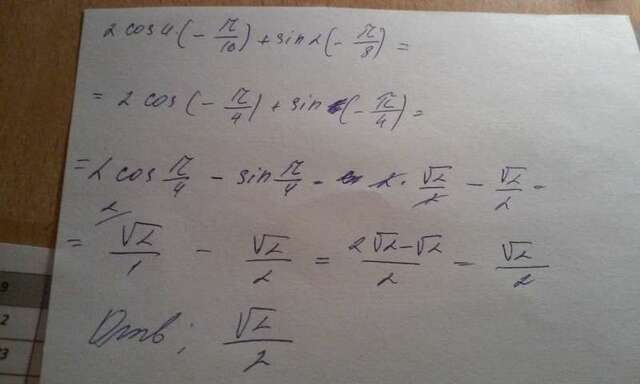 2 cos 4·(-π/16) + sin 2(-π/8) =
= 2 cos(-π/4) + sin(-π/4) =
= 2 cos π/4 - sin π/4 = 2 · √2/2 - √2/2 =
= √2/1 - √2/2 = 2√2-√2/2 = √2/2
Отв; √2/2
9
2
3